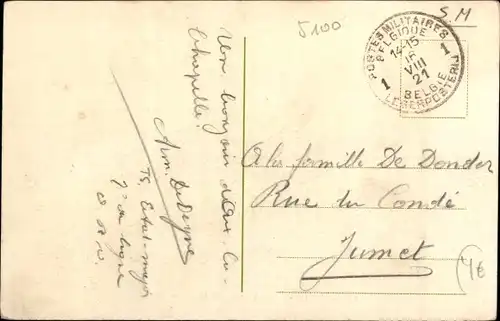 5100
S. M
POSTES MILITAIRES
BELGIQUE
14-15
16
VIII
21
BELGIE
LEGERPOSTERIJ
1 1
Un bonjour d'Aix-la-
Chapelle!
Arm. De Deyne
TS, Etat-major
7e de ligne
A la famille De Donder
Rue du Condé
Jumet
4€